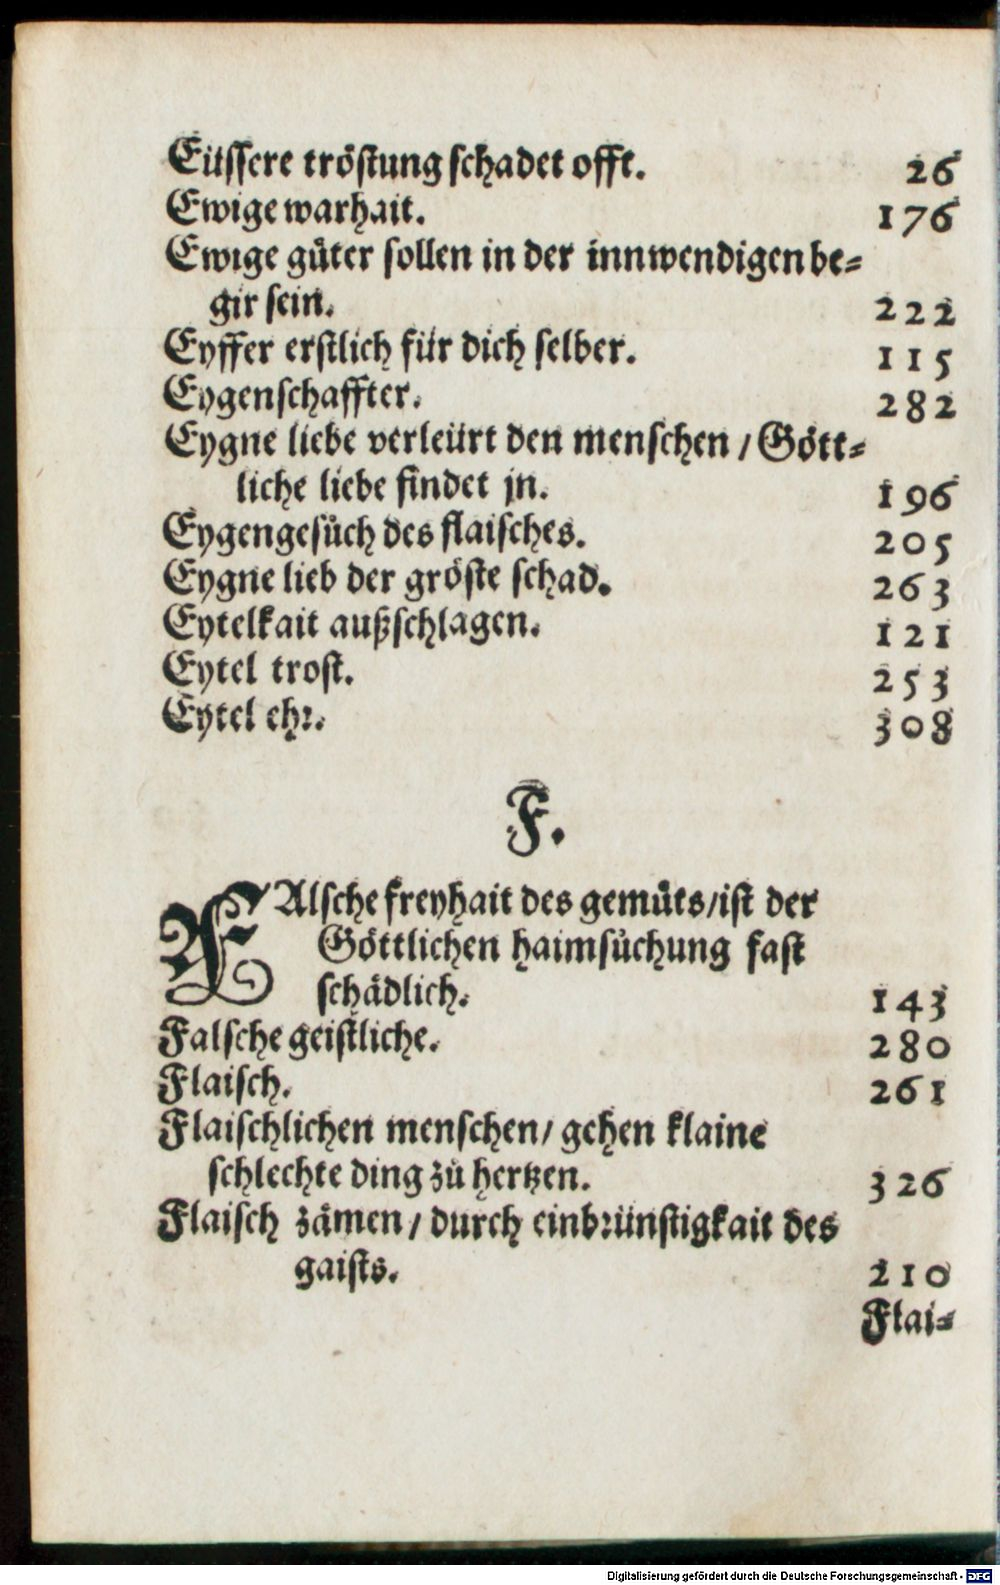 Eüssere tröstung schadet offt. 26
Ewige warhait. 176
Ewige güter sollen in der innwendigen be=
gir sein. 222
Eyffer erstlich für dich selber. 115
Eygenschaffter. 282
Eygne liebe verleürt den menschen / Gött=
liche liebe findet jn. 196
Eygengesůch des flaisches. 205
Eygne lieb der gröste schad. 263
Eytelkait außschlagen. 121
Eytel trost. 253
Eytel ehr. 308
F.
FAlsche freyhait des gemüts/ist der
Göttlichen haimsůchung fast
schädlich. 143
Falsche geistliche. 280
Flaisch. 261
Flaischlichen menschen/ gehen klaine
schlechte ding zů hertzen. 326
Flaisch zämen / durch einbrünstigkait des
gaists. 210
Flai=
Digitalisierung gefördert durch die Deutsche Forschungsgemeinschaft - DFG